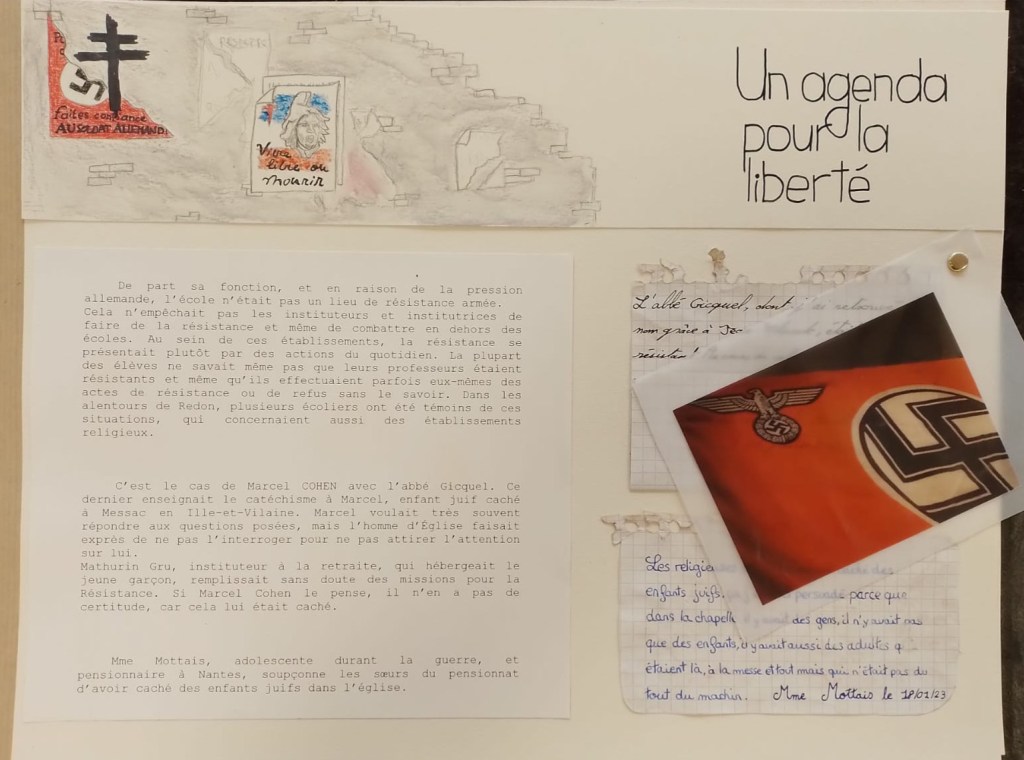 faites confiance
AU SOLDAT ALLEMAND!
Vivre
libre ou
mourir
Un agenda
pour la
liberté
De part sa fonction, et en raison de la pression
allemande, l'école n'était pas un lieu de résistance armée.
Cela n'empêchait pas les instituteurs et institutrices de
faire de la résistance et même de combattre en dehors des
écoles. Au sein de ces établissements, la résistance se
présentait plutôt par des actions du quotidien. La plupart
des élèves ne savait même pas que leurs professeurs étaient
résistants et même qu'ils effectuaient parfois eux-mêmes des
actes de résistance ou de refus sans le savoir. Dans les
alentours de Redon, plusieurs écoliers ont été témoins de ces
situations, qui concernaient aussi des établissements
religieux.
C'est le cas de Marcel COHEN avec l'abbé Gicquel. Ce
dernier enseignait le catéchisme à Marcel, enfant juif caché
à Messac en Ille-et-Vilaine. Marcel voulait très souvent
répondre aux questions posées, mais l'homme d'Église faisait
exprès de ne pas l'interroger pour ne pas attirer l'attention
sur lui.
Mathurin Gru, instituteur à la retraite, qui hébergeait le
jeune garçon, remplissait sans doute des missions pour la
Résistance. Si Marcel Cohen le pense, il n'en a pas de
certitude, car cela lui était caché.
Mme Mottais, adolescente durant la guerre, et
pensionnaire à Nantes, soupçonne les sœurs du pensionnat
d'avoir caché des enfants juifs dans l'église.
L'abbé Gicquel, dont j'ai
nom grâce à
résistan
Les religie
enfants juifs. parce que
dans la chapelle des gens, il n'y avait pas
que des enfants, il y avait aussi des adultes q
étaient là, à la messe et tout mais qui n'était pas du
tout du machin. Mme Mottais le 18/01/23